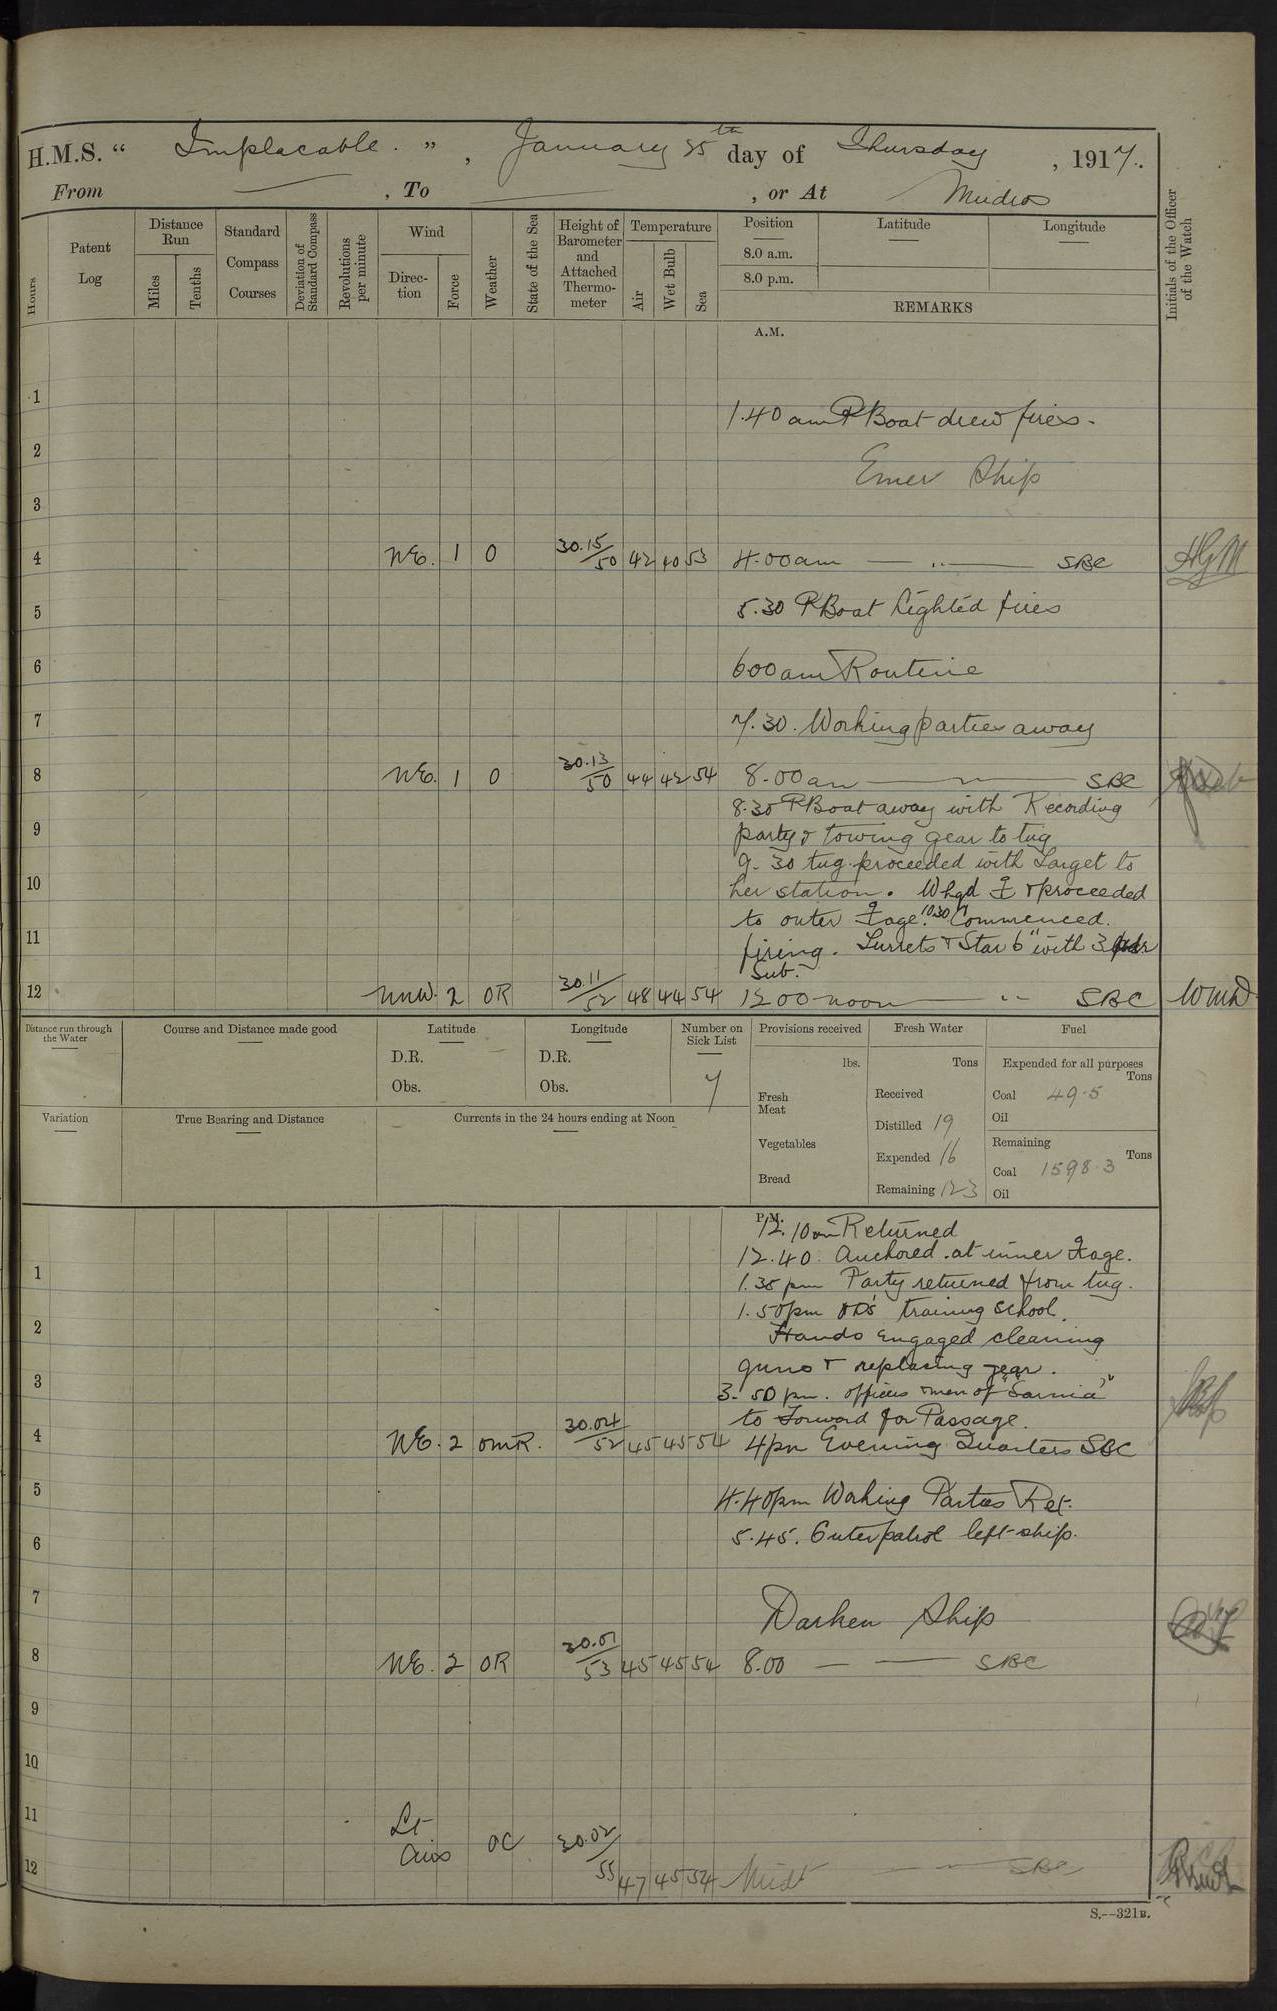 H.M.S. “ Implacable. ” , January 25th day of Thursday , 1917.
From — , To — , or At Mudros
Hours
Patent Log
Distance Run
Miles
Tenths
Standard Compass Courses
Deviation of Standard Compass
Revolutions per minute
Wind
Direction
Force
Weather
State of the Sea
Height of Barometer and Attached Thermometer
Temperature
Air
Wet Bulb
Sea
Position
8.0 a.m.
8.0 p.m.
Latitude
Longitude
REMARKS
Initials of the Officer of the Watch
A.M.
1
1.40 am P Boat drew fires.
2
Emer Ship
3
4 NE. 1 O 30.15/50 42 40 53 4.00am — .. — SBC HGM
5 5.30 PBoat lighted fires
6 600am Routine
7 7.30. Working parties away
8 NE. 1 O 30.13/50 44 42 54 8.00am — SBC
8.30 PBoat away with Recording
9 party & towing gear to tug
9.30 tug proceeded with Target to
10 her station. Whgd & proceeded
to outer age. 10.30 Commenced
11 firing. Turrets & Star 6" with 3
Sub.
12 NNW. 2 OR 30.11/52 48 44 54 1200 noon — .. SBC WMD
Distance run through the Water
Course and Distance made good
Latitude
D.R.
Obs.
Longitude
D.R.
Obs.
Number on Sick List
7
Provisions received
lbs.
Fresh Meat
Vegetables
Bread
Fresh Water
Tons
Received
Distilled 19
Expended 16
Remaining 123
Fuel
Expended for all purposes
Tons
Coal 49.5
Oil
Remaining
Tons
Coal 1598.3
Oil
Variation
True Bearing and Distance
Currents in the 24 hours ending at Noon
P.M.
12.10pm Returned
12.40. Anchored at inner age.
1 1.35 pm Party returned from tug.
1.50pm OD's training school.
2 Hands engaged cleaning
guns & replacing gear.
3 3.50 pm. officers & men of "Sarnia"
to Forward for Passage.
4 NE. 2 omR. 30.04/52 45 45 54 4pm Evening Quarters SBC
5 4.40pm Working Parties Ret.
6 5.45. Outer patrol left ship.
7
Darken Ship
8 NE. 2 OR 30.01/53 45 45 54 8.00 — — SBC
9
10
11
Lt
Airs OC 30.02/55
12 47 45 54 Midt — — SBC
S.--321B.